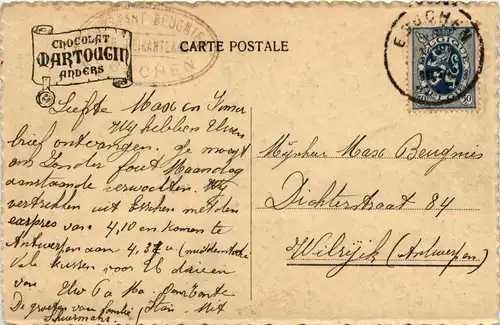 CHOCOLAT
MARTOUGIN
ANVERS
CONSTANT BEUGNIE
ESSCHEN
CARTE POSTALE
ESSCHEN
BELGIQUE
50
Liefste Max en
Wij hebben Uwen
brief ontvangen. Je moogt
ons zonder fout Maandag
aanstaande verwachten. Wij
vertrekken uit Esschen met den
express van 4,10 en komen te
Antwerpen aan 4,37 u (middenstatie)
Vele kussen voor U
van
Uw Pa Ma Constante
De groeten van familie Stan. Mit
Mijnheer Max Beugnies
Dichterstraat 84
Wilrijk (Antwerpen)